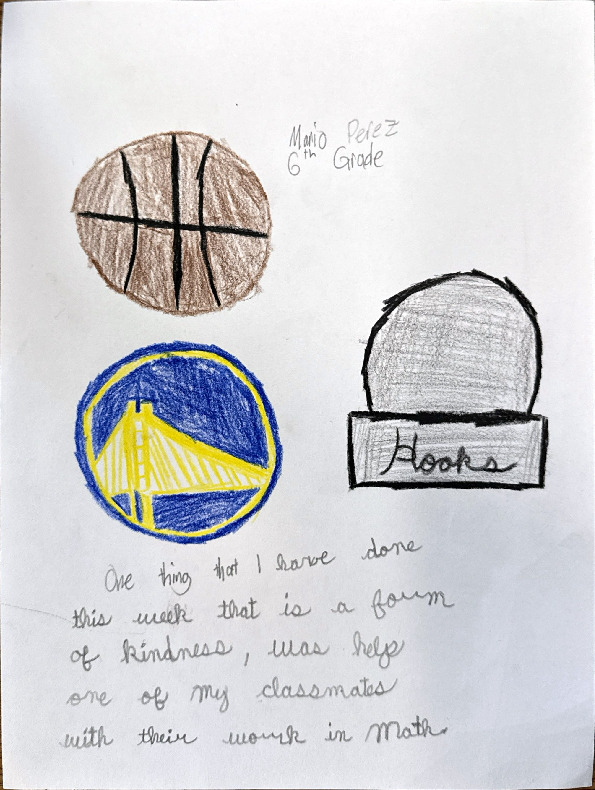 Mario Perez
6th Grade
Hooks
One thing that I have done
this week that is a form
of kindness, was help
one of my classmates
with their work in Math.